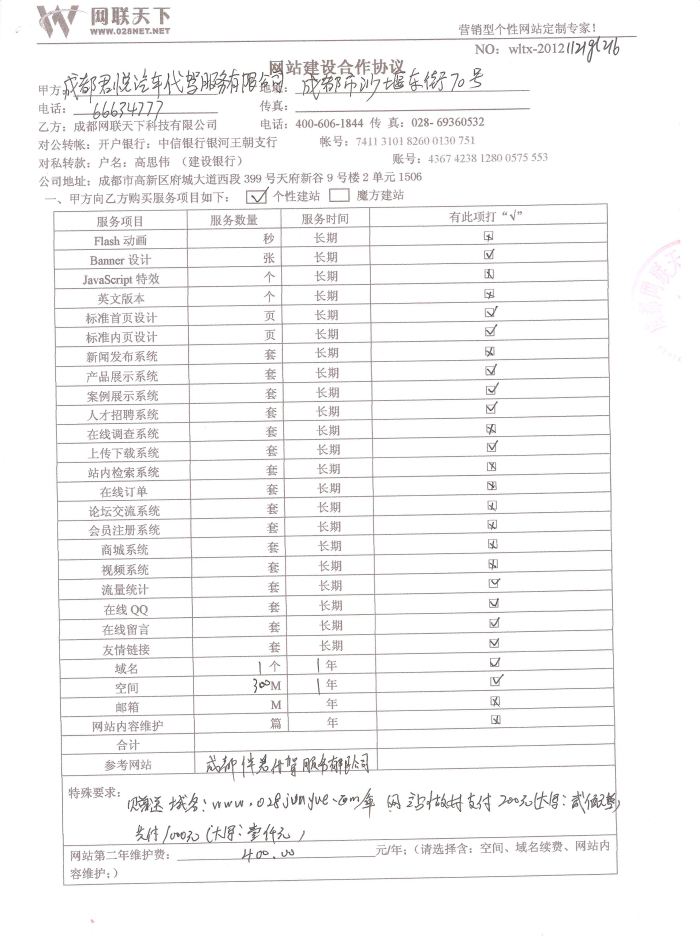 网联天下
WWW.028NET.NET
营销型个性网站定制专家！
NO: wltx-2012
网站建设合作协议
甲方：成都君悦汽车代驾服务有限公司 地址：成都市沙堰东街70号
电话：66634777 传真：
乙方：成都网联天下科技有限公司 电话：400-606-1844 传 真：028- 69360532
对公转帐：开户银行：中信银行银河王朝支行 帐号：7411 3101 8260 0130 751
对私转款：户名：高思伟 （建设银行） 账号：4367 4238 1280 0575 553
公司地址：成都市高新区府城大道西段 399 号天府新谷 9 号楼 2 单元 1506
一、甲方向乙方购买服务项目如下： 个性建站 魔方建站
服务项目 服务数量 服务时间 有此项打“√”
Flash 动画 秒 长期
Banner 设计 张 长期 √
JavaScript 特效 个 长期
英文版本 个 长期
标准首页设计 页 长期 √
标准内页设计 页 长期 √
新闻发布系统 套 长期
产品展示系统 套 长期 √
案例展示系统 套 长期 √
人才招聘系统 套 长期 √
在线调查系统 套 长期
上传下载系统 套 长期 √
站内检索系统 套 长期
在线订单 套 长期
论坛交流系统 套 长期
会员注册系统 套 长期
商城系统 套 长期
视频系统 套 长期
流量统计 套 长期 √
在线 QQ 套 长期 √
在线留言 套 长期 √
友情链接 套 长期 √
域名 1 个 1 年 √
空间 300M 1 年 √
邮箱 M 年
网站内容维护 篇 年
合计
参考网站 成都伴君代驾服务有限公司
特殊要求：
赠送域名：www.028junyue.com 网站做好支付
先付1000元（大写：壹仟元）
网站第二年维护费：400.00 元/年；（请选择含：空间、域名续费、网站内
容维护；）